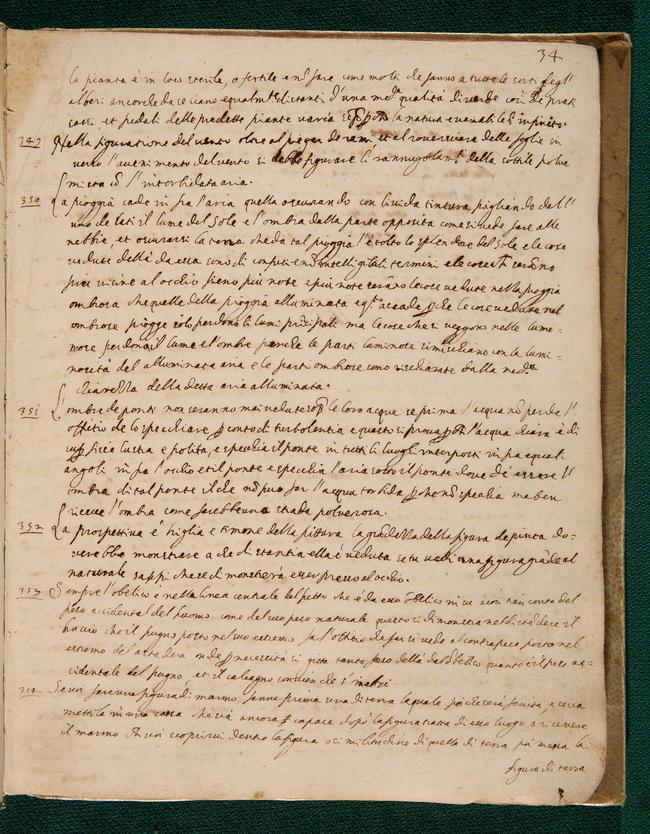 34
la pianta è in loco sterile, o fertile e nõ fare come molti che fanno a tutte le sorti degl'
alberi ancorche da se siano equalmte distanti d'una meda qualità di verde così de prati
sassi, et pedali delle predette piante varia sempre la natura è variabile in infinito.
349 Nella figuratione del vento oltre al piegar de rami, et al rovesciare delle foglie in
verso l'avenimento del vento si debbe figurare li rannugolamti della sottile polve
mista cõ l'intorbidata aria.
350 La pioggia cade in fra l'aria quella oscurando con livida tintura pigliando dall'
uno de lati il lume del Sole e l'ombra dalla parte opposita come si vede fare alle
nebbie, et oscurarsi la terra che da tal pioggia l'è tolto lo splendore del Sole e le cose
vedute della da essa sono di confusi e nõ intelligibili termini e le cose che saranno
più vicine al occhio sieno più note e più note saranno le cose vedute nella pioggia
ombrosa che quelle della pioggia alluminata e qto accade pche le cose vedute nel
ombrose piogge solo perdono li lumi principali ma le cose che si veggono nelle lumi=
nose perdono il lume e l'ombre perche le parti luminose si mischiano con la lumi=
nosità del alluminata aria e le parti ombrose sono rischiarate dalla meda
chiarezza della detta aria alluminata.
351 L'ombre de ponti non seranno mai vedute sopa le loro acque se prima l'acqua nõ perde l'
offitio de lo specchiare p conto di turbolentia e questo si prova pche l'acqua chiara è di
supficie lustra e polita, e specchia il ponte in tutti li luoghi interposti in fra equali
angoli in fra l'ochio et il ponte e specchia l'aria sotto il ponte dove dè essere l'
ombra di tal ponte il che nõ puo far l'acqua torbida pche nõ specchia ma ben
riceve l'ombra come farebbe una strada polverosa.
352 La prospettiva è briglia e timone della pittura la grandezza della figura depinta do=
verebbe monstrare a che distantia ella è veduta se tu vedi una figura grãde al
naturale sappi che se di monstrerà esser presso al ochio.
353 Sempre l'obelico è nella linea centrale del petto che è da esso obelico in su e così tien conto del
peso accidentale del huomo come del suo peso naturale questo si dimonstra nello stendere il
braccio che il pugno posto nel suo estremo fa l'offitio che far si vede al contrapeso posto nel
estremo de la stadera onde p necessità si gitta tanto peso dellà del obelico quanto è il peso ac=
cidentale del pugno, et il calcagno convien che s'inalzi
354 Se voi fare una figura di marmo fanne prima una di terra la quale poi che serà fenita, e secca
mettila in una cassa che sia ancora capace dopo la figura tratta di esso luogo a ricevere
il marmo che voi scoprirvi dentro la figura a similitudine di quella di terra poi messa la
figura di terra